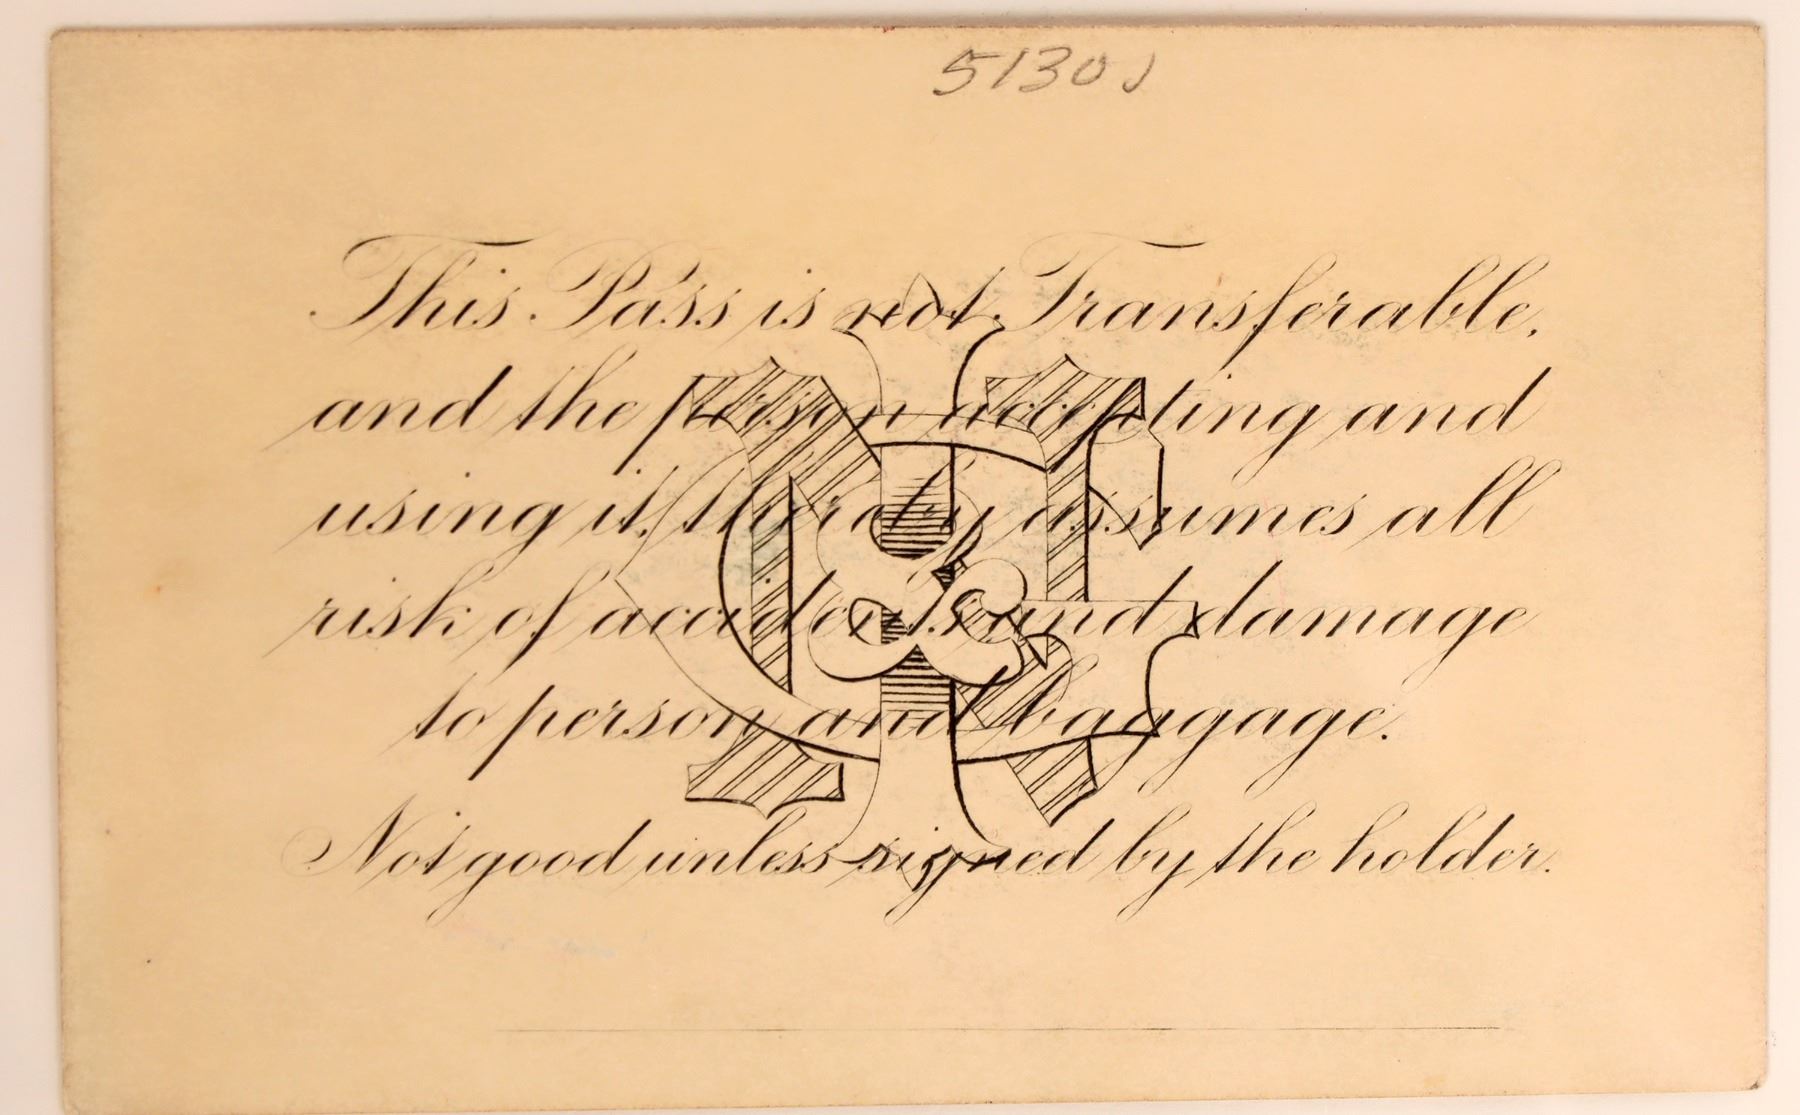 5130J
This Pass is not Transferable,
and the person accepting and
using it, thereby assumes all
risk of accidents and damage
to person and baggage.
Not good unless signed by the holder.